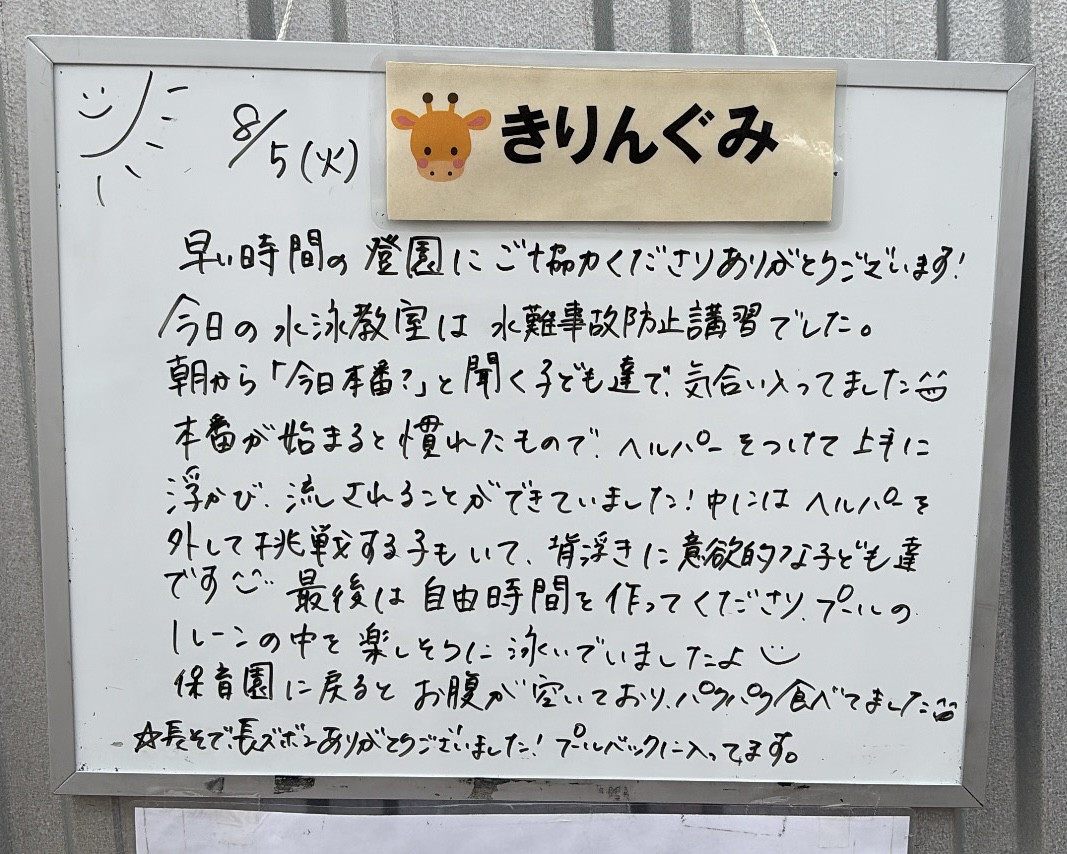 きりんぐみ
8/5(火)
早い時間の登園にご協力くださりありがとうございます!
今日の水泳教室は水難事故防止講習でした。
朝から「今日本番?」と聞く子ども達で、気合い入ってました
本番が始まると慣れたもので、ヘルパーをつけて上手に
浮かび、流されることができていました!中にはヘルパーを
外して挑戦する子もいて、背浮きに意欲的な子ども達
です 最後は自由時間を作ってくださり、プールの
1レーンの中を楽しそうに泳いでいましたよ
保育園に戻るとお腹が空いており、パクパク食べてました
☆長そで、長ズボンありがとうございました!プールバックに入ってます。